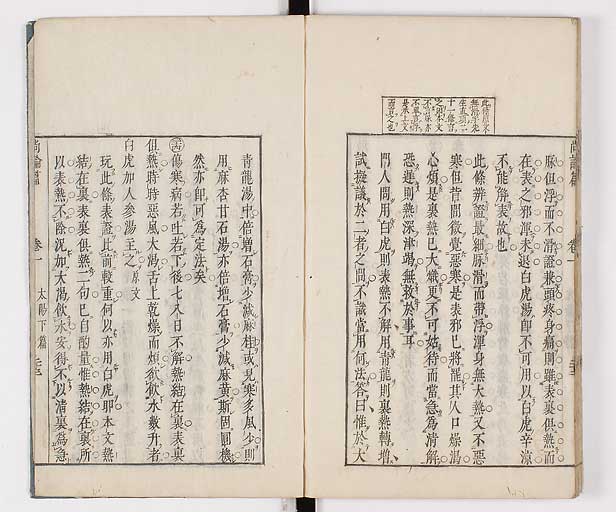 脉但浮而不滑證兼頭疼身痛則雖表裏俱熱而
在表之邪渾未退白虎湯卽不可用以白虎辛涼
不能解表故也
此條辨證最細脉滑而帶浮渾身無大熱又不惡
寒但背間微覺惡寒是表邪已將罷其人口燥渴
心煩是裏熱已大熾更不可姑待而當急爲清解
恐遲則熱深津竭無救於事耳
門人問用白虎則表熱不解用青龍則裏熱轉增
試擬議於二者之間不識當用何法答曰惟於大
尚論篇 卷一
青龍湯中倍增石膏少減麻桂或見寒多風少則
用麻杏甘石湯亦倍增石膏少減麻黄斯固圓機
然亦卽可爲定法矣
傷寒病若吐若下後七八日不解熱結在裏表裏
俱熱時時惡風大渴舌上乾燥而煩欲飲水數升者
白虎加人參湯主之原文
玩此條表證比前較重何以亦用白虎耶本文熱
結在裏表裏俱熱二句已自酌量惟熱結在裏所
以表熱不除況加大渴飲水安得不以清裏爲急
尚論篇 卷一 太陽下篇